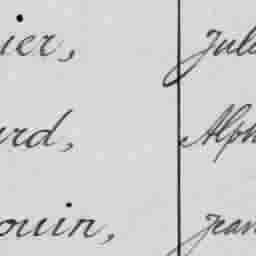 ier, Jul
ard, Alph
ouin, Jean